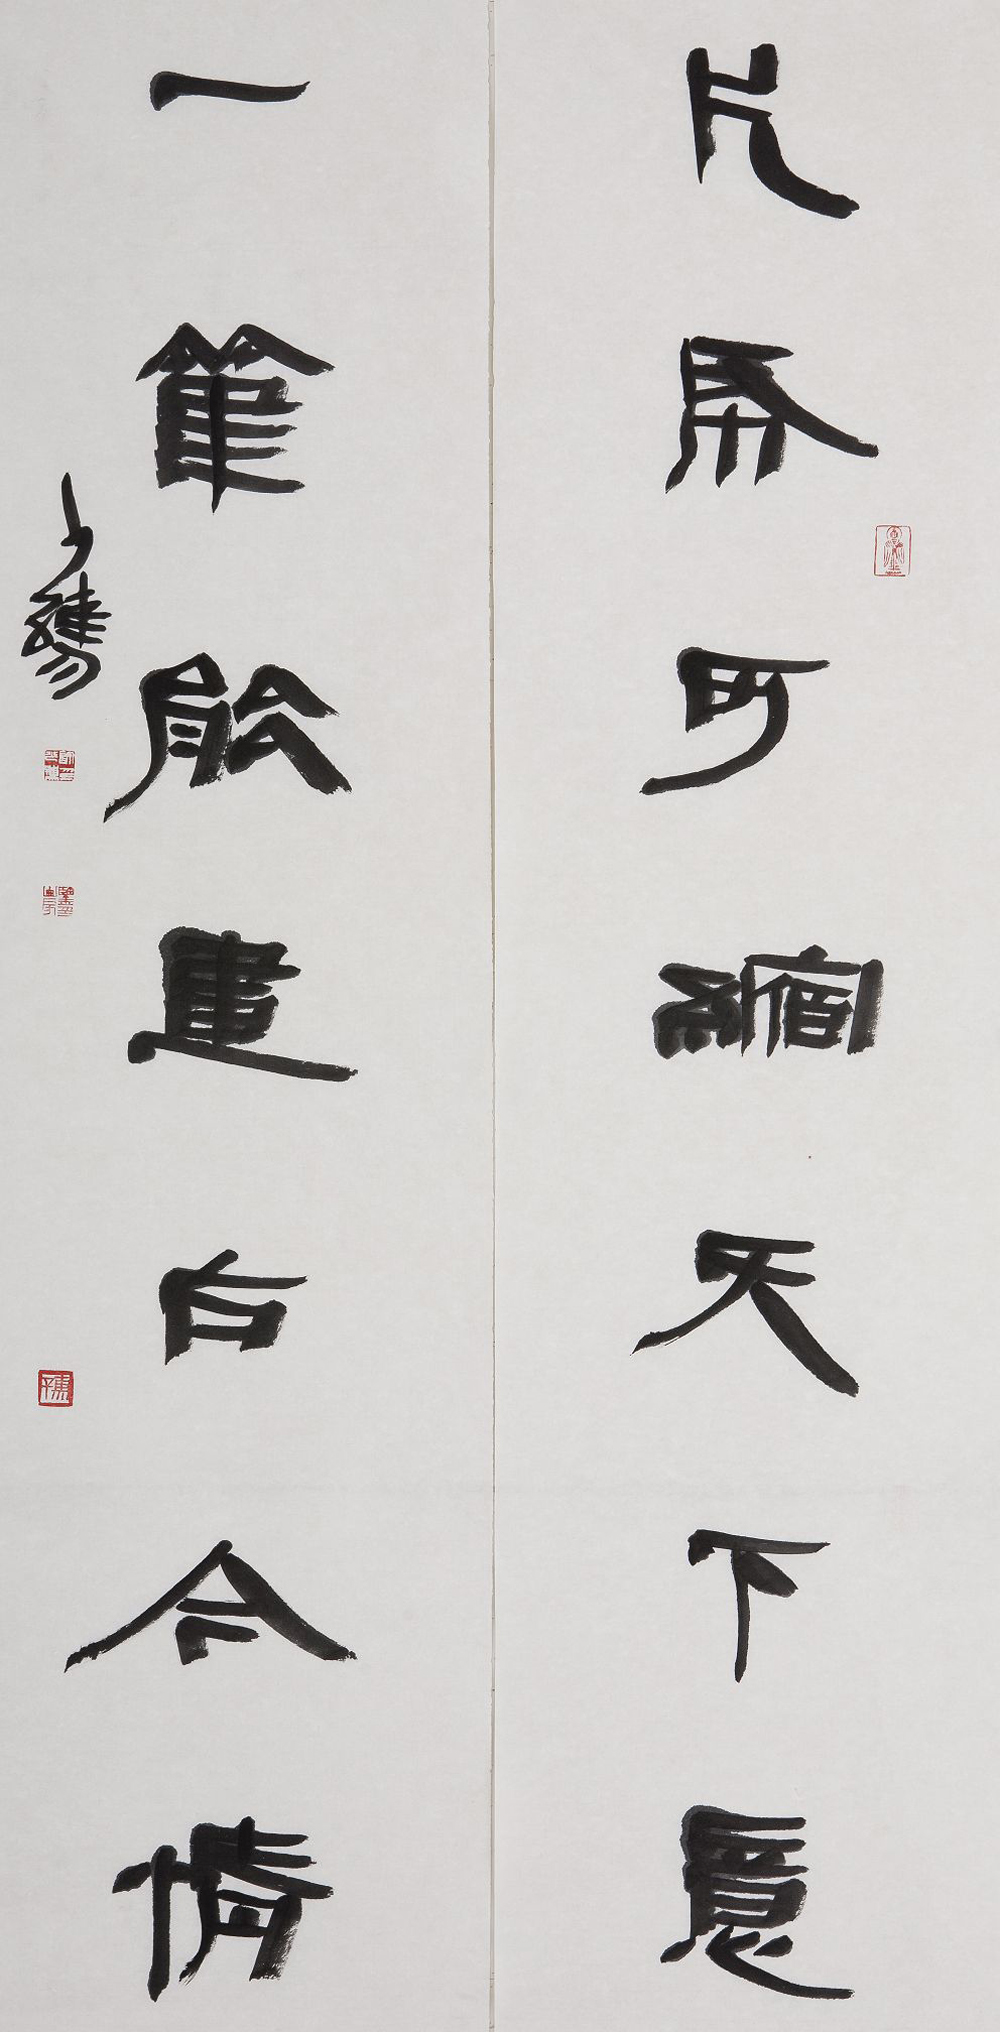 片帋可縮天下意
一筆能畫古今情